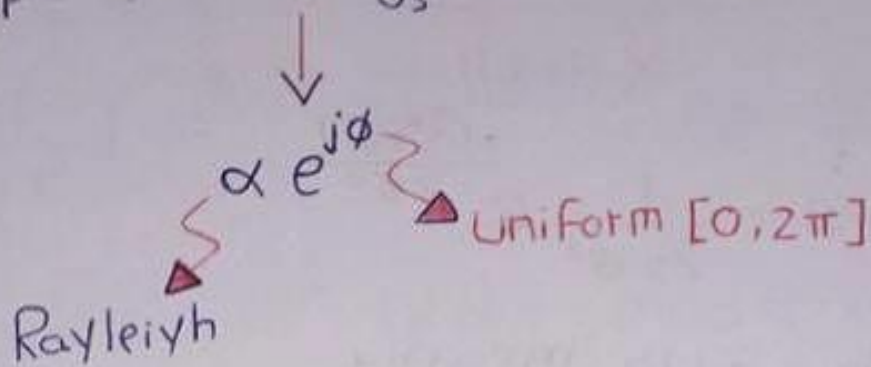 α e^jφ
uniform [0,2π]
Rayleiyh